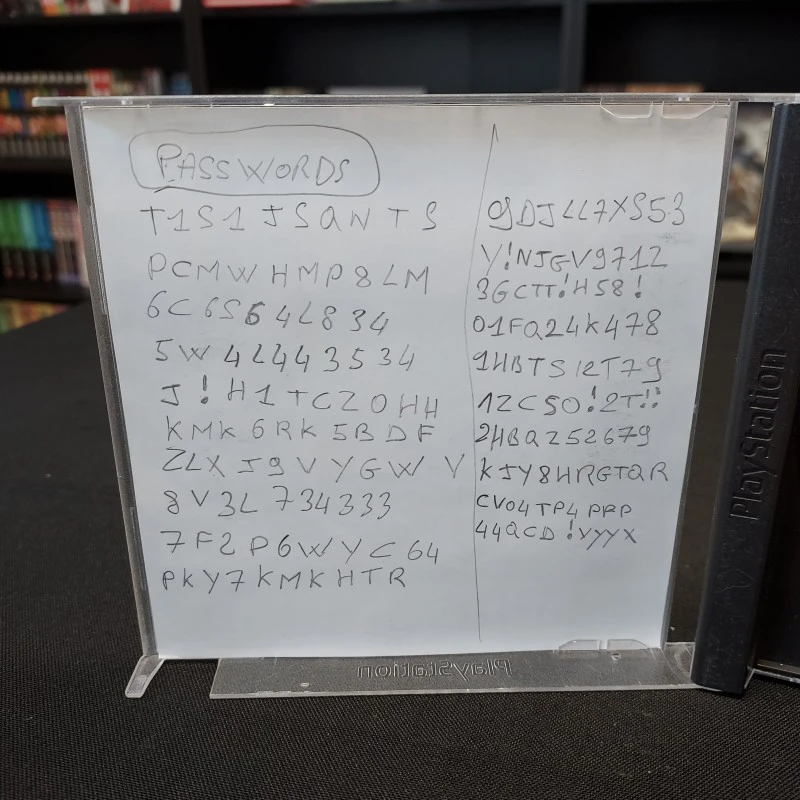 PASSWORDS
T1S1JSQNTS
PCMWHMP8LM
6C6S64L834
5W4L443534
J!H1TCZOHH
KMK6RK5BDF
ZLXJ9VYGWV
8V3L734333
7F2P6WYC64
PKY7KMKHTR
09DJLL7XS53
Y!NJGV9712
3GCTT!H58!
01FQ24K478
1HBTS12T79
1ZC5O!2T!!
2HBQZ52679
KJY8HRGTQR
CV04TP4PRP
44QCD!VYYX
PlayStation
PlayStation